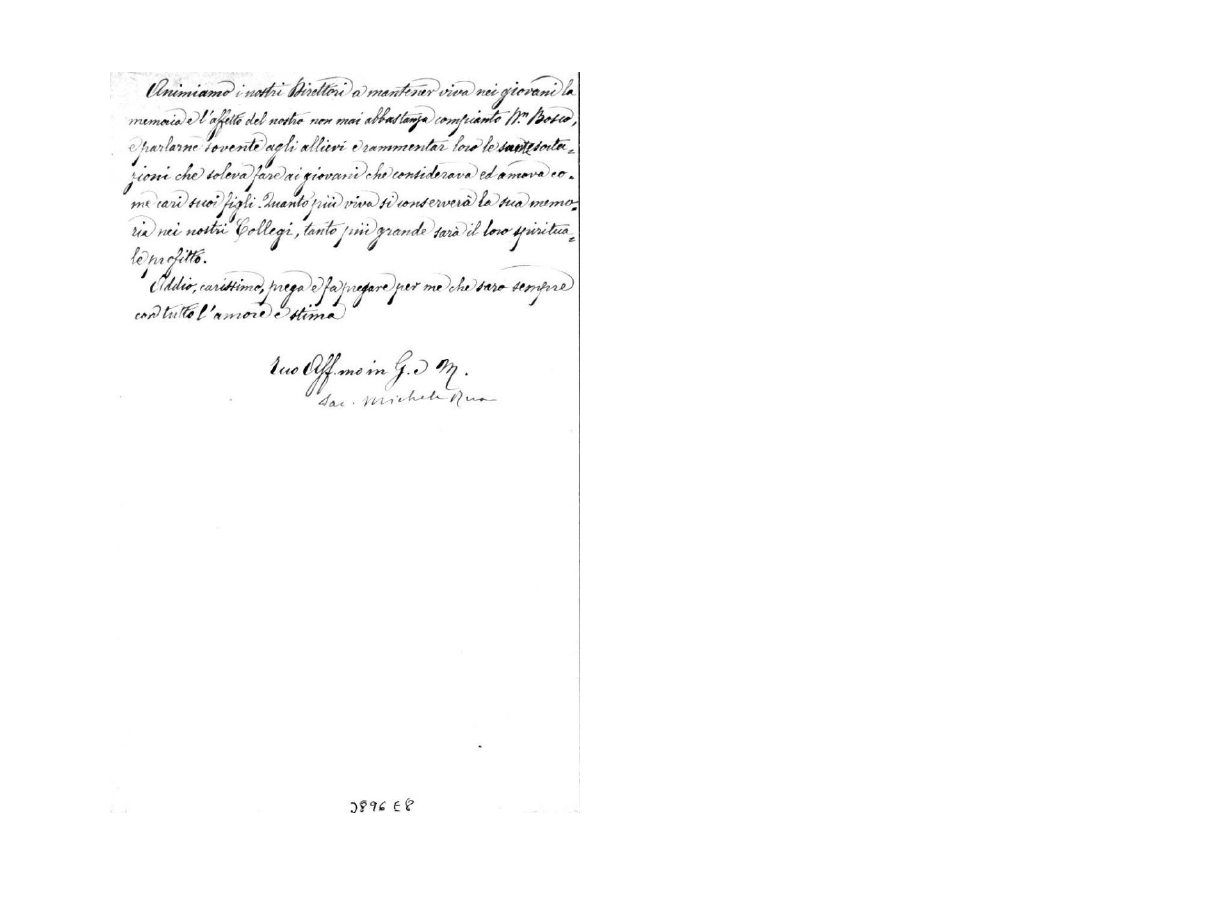 Animiamo i nostri Direttori a mantener viva nei giovani la
memoria e l'affetto del nostro non mai abbastanza compianto Dn Bosco,
e parlarne sovente agli allievi e rammentar loro le sante esorta=
zioni che soleva fare ai giovani che considerava ed amava co=
me cari suoi figli. Quanto più viva si conserverà la sua memo=
ria nei nostri Collegi, tanto più grande sarà il loro spiritua=
le profitto.
Addio, carissimo, prega e fa pregare per me che saro sempre
con tutto l'amore e stima
tuo Aff.mo in G. e M.
Sac. Michele Rua
3896 E8